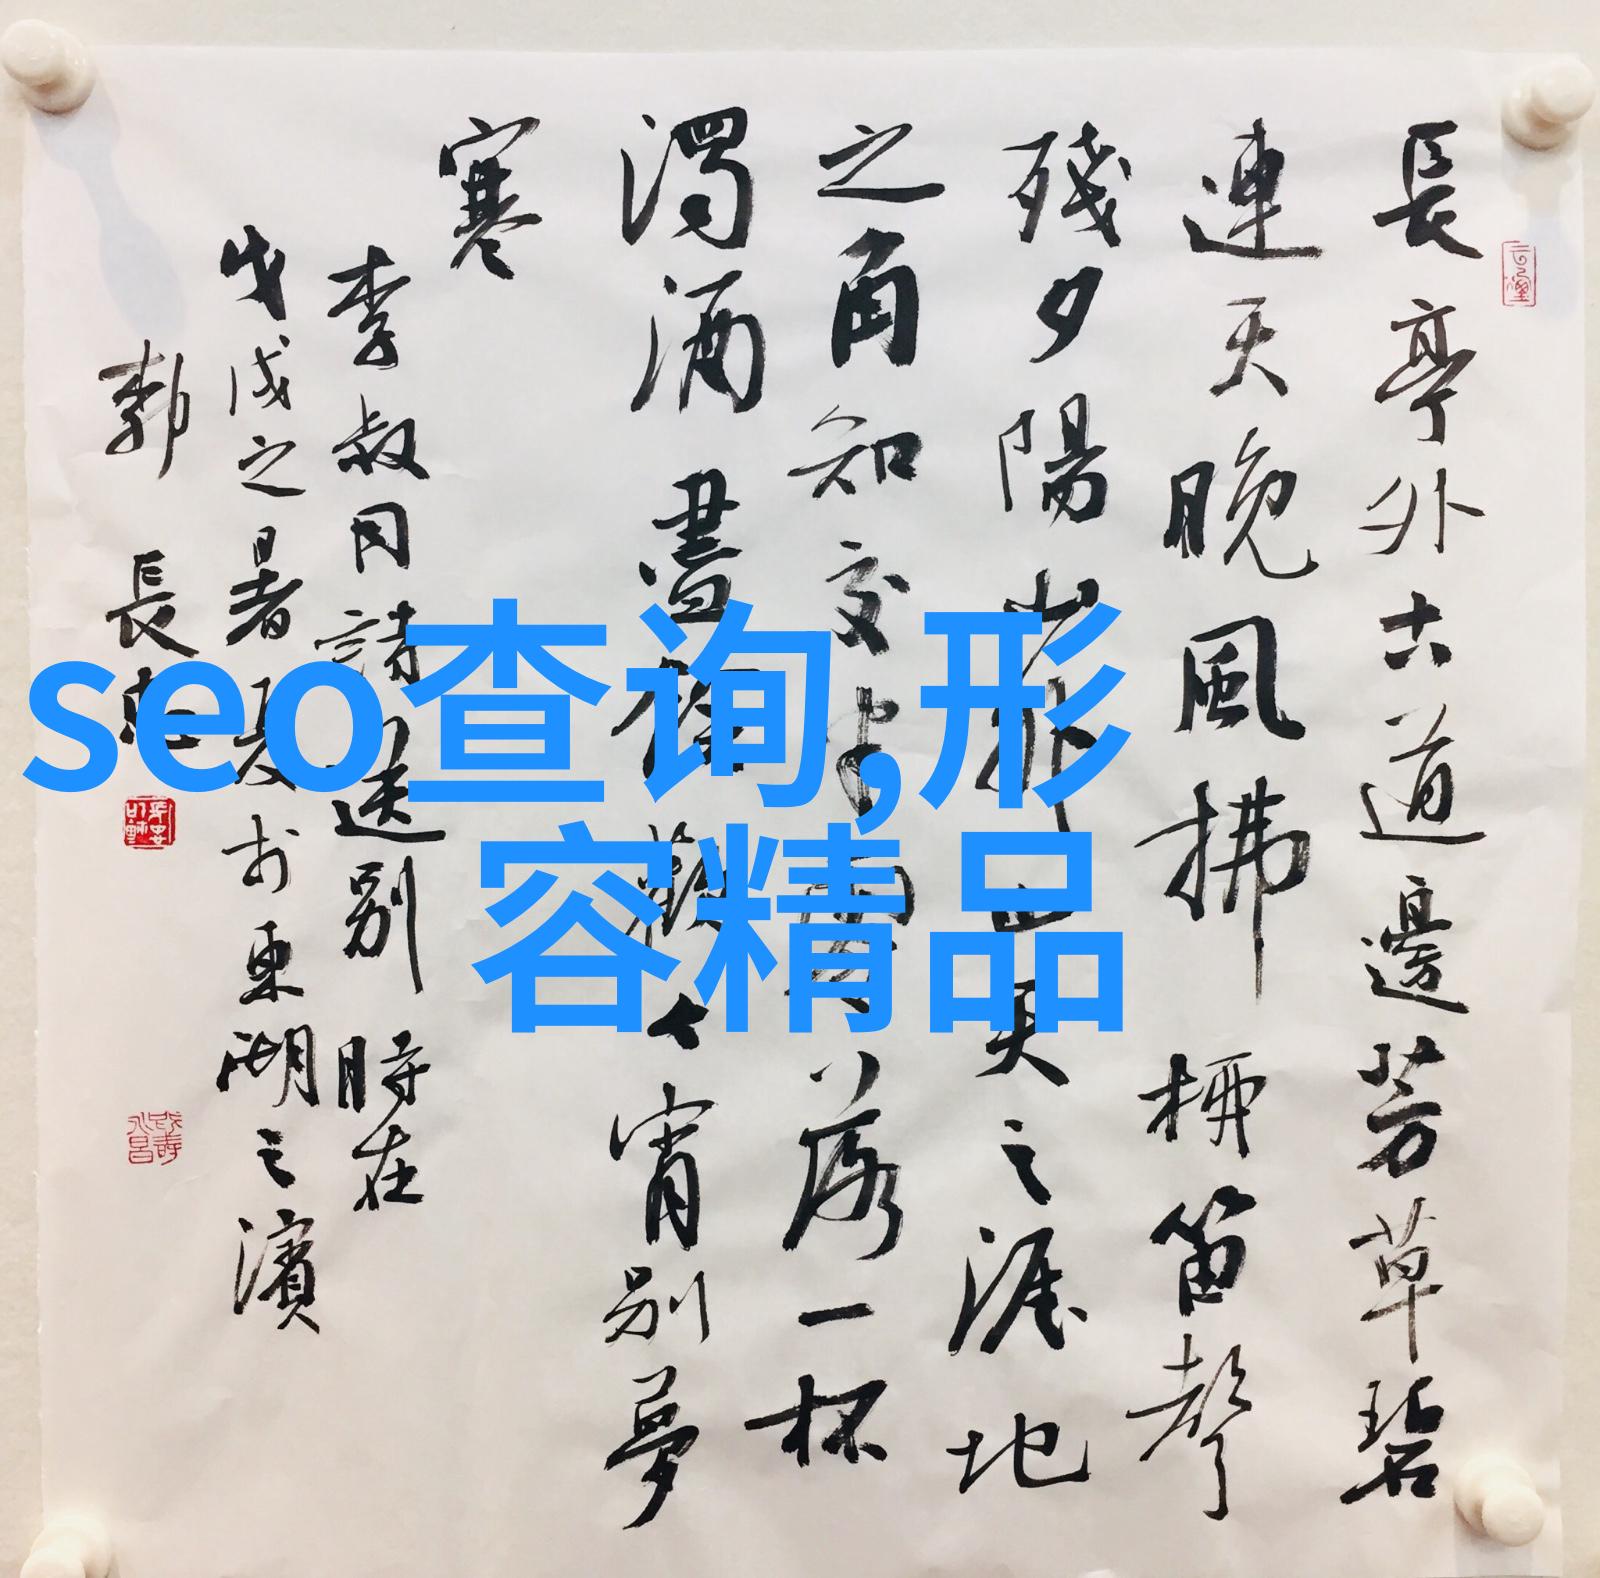 seo查询,形
容精品
長亭外古道邊芳草碧
連天晚風拂柳笛聲
殘夕陽山外山天之涯地
之角知交半零落一杯
濁酒盡餘歡今宵別夢
寒
李叔同詩送別時在
戊戌之暑夏於東湖之濱
長